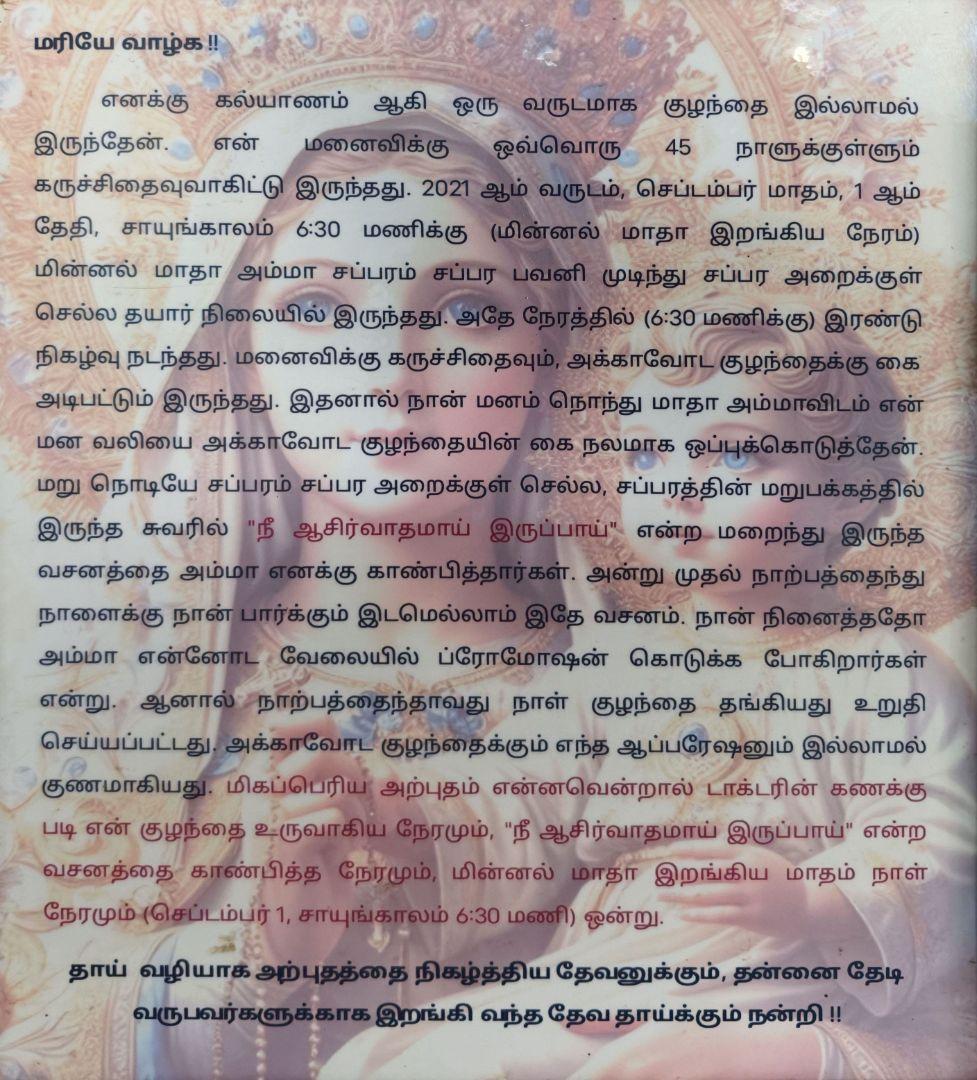 மரியே வாழ்க !!
எனக்கு கல்யாணம் ஆகி ஒரு வருடமாக குழந்தை இல்லாமல்
இருந்தேன். என் மனைவிக்கு ஒவ்வொரு 45 நாளுக்குள்ளும்
கருச்சிதைவுவாகிட்டு இருந்தது. 2021 ஆம் வருடம், செப்டம்பர் மாதம், 1 ஆம்
தேதி, சாயுங்காலம் 6:30 மணிக்கு (மின்னல் மாதா இறங்கிய நேரம்)
மின்னல் மாதா அம்மா சப்பரம் சப்பர பவனி முடிந்து சப்பர அறைக்குள்
செல்ல தயார் நிலையில் இருந்தது. அதே நேரத்தில் (6:30 மணிக்கு) இரண்டு
நிகழ்வு நடந்தது. மனைவிக்கு கருச்சிதைவும், அக்காவோட குழந்தைக்கு கை
அடிபட்டும் இருந்தது. இதனால் நான் மனம் நொந்து மாதா அம்மாவிடம் என்
மன வலியை அக்காவோட குழந்தையின் கை நலமாக ஒப்புக்கொடுத்தேன்.
மறு நொடியே சப்பரம் சப்பர அறைக்குள் செல்ல, சப்பரத்தின் மறுபக்கத்தில்
இருந்த சுவரில் "நீ ஆசிர்வாதமாய் இருப்பாய்" என்ற மறைந்து இருந்த
வசனத்தை அம்மா எனக்கு காண்பித்தார்கள். அன்று முதல் நாற்பத்தைந்து
நாளைக்கு நான் பார்க்கும் இடமெல்லாம் இதே வசனம். நான் நினைத்ததோ
அம்மா என்னோட வேலையில் ப்ரோமோஷன் கொடுக்க போகிறார்கள்
என்று. ஆனால் நாற்பத்தைந்தாவது நாள் குழந்தை தங்கியது உறுதி
செய்யப்பட்டது. அக்காவோட குழந்தைக்கும் எந்த ஆப்பரேஷனும் இல்லாமல்
குணமாகியது. மிகப்பெரிய அற்புதம் என்னவென்றால் டாக்டரின் கணக்கு
படி என் குழந்தை உருவாகிய நேரமும், "நீ ஆசிர்வாதமாய் இருப்பாய்" என்ற
வசனத்தை காண்பித்த நேரமும், மின்னல் மாதா இறங்கிய மாதம் நாள்
நேரமும் (செப்டம்பர் 1, சாயுங்காலம் 6:30 மணி) ஒன்று.
தாய் வழியாக அற்புதத்தை நிகழ்த்திய தேவனுக்கும், தன்னை தேடி
வருபவர்களுக்காக இறங்கி வந்த தேவ தாய்க்கும் நன்றி !!